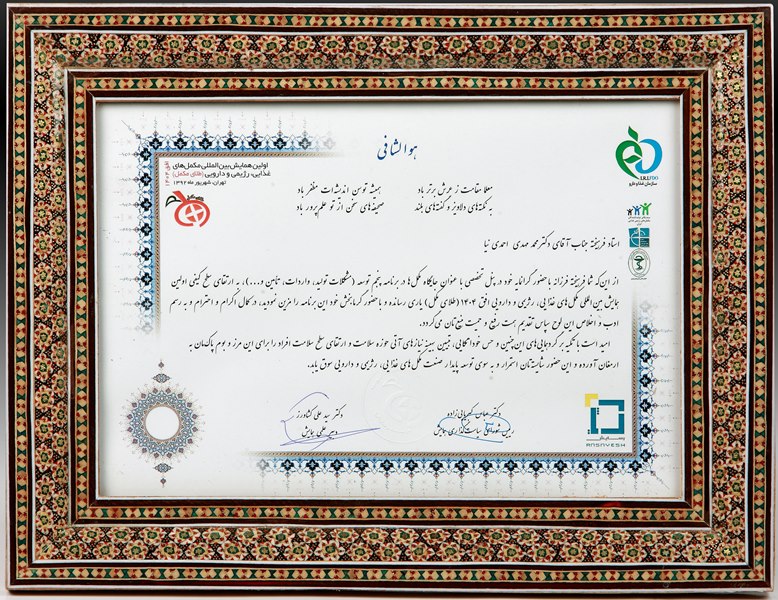 هوالشافی
اولین همایش بین‌المللی مکمل‌های
غذایی، رژیمی و دارویی (طلای مکمل)
تهران، شهریور ماه ۱۳۹۲
افق ۱۴۰۴
I.R.I.FDO
سازمان غذا و دارو
معلا مقامت ز عرش برتر باد
همیشه توسن اندیشه‌ات مظفر باد
به نکته‌های دلاویز و گفته‌های بلند
صحیفه‌های سخن از تو علم‌پرور باد
استاد فرهیخته جناب آقای دکتر محمد مهدی احمدی نیا
از این‌که شما فرهیخته فرزانه با حضور گرانمایه خود در پنل تخصصی با عنوان جایگاه مکمل‌ها در برنامه پنجم توسعه (مشکلات تولید، واردات، تأمین و...)، به ارتقای سطح کیفی اولین
همایش بین المللی مکمل‌های غذایی، رژیمی و دارویی افق ۱۴۰۴ (طلای مکمل) یاری رسانده و با حضور گرمابخش خود این برنامه را مزین نمودید، در کمال اکرام و احترام و به رسم
ادب و اخلاص این لوح سپاس تقدیم همت رفیع و حمیت منیع‌تان می‌گردد.
امید است با تکیه بر گردهمایی‌های این‌چنین و حس خوداتکایی، تبیین بهینه نیازهای آتی حوزه سلامت و ارتقای سطح سلامت افراد را برای این مرز و بوم پاک‌مان به
ارمغان آورده و این حضور شایسته‌تان استمرار و به سوی توسعه پایدار صنعت مکمل‌های غذایی، رژیمی و دارویی سوق یابد.
دکتر عباس کبریایی زاده
رییس شورای سیاست‌گذاری همایش
دکتر سید علی کشاورز
دبیر علمی همایش
رسانایش
RASAYESH